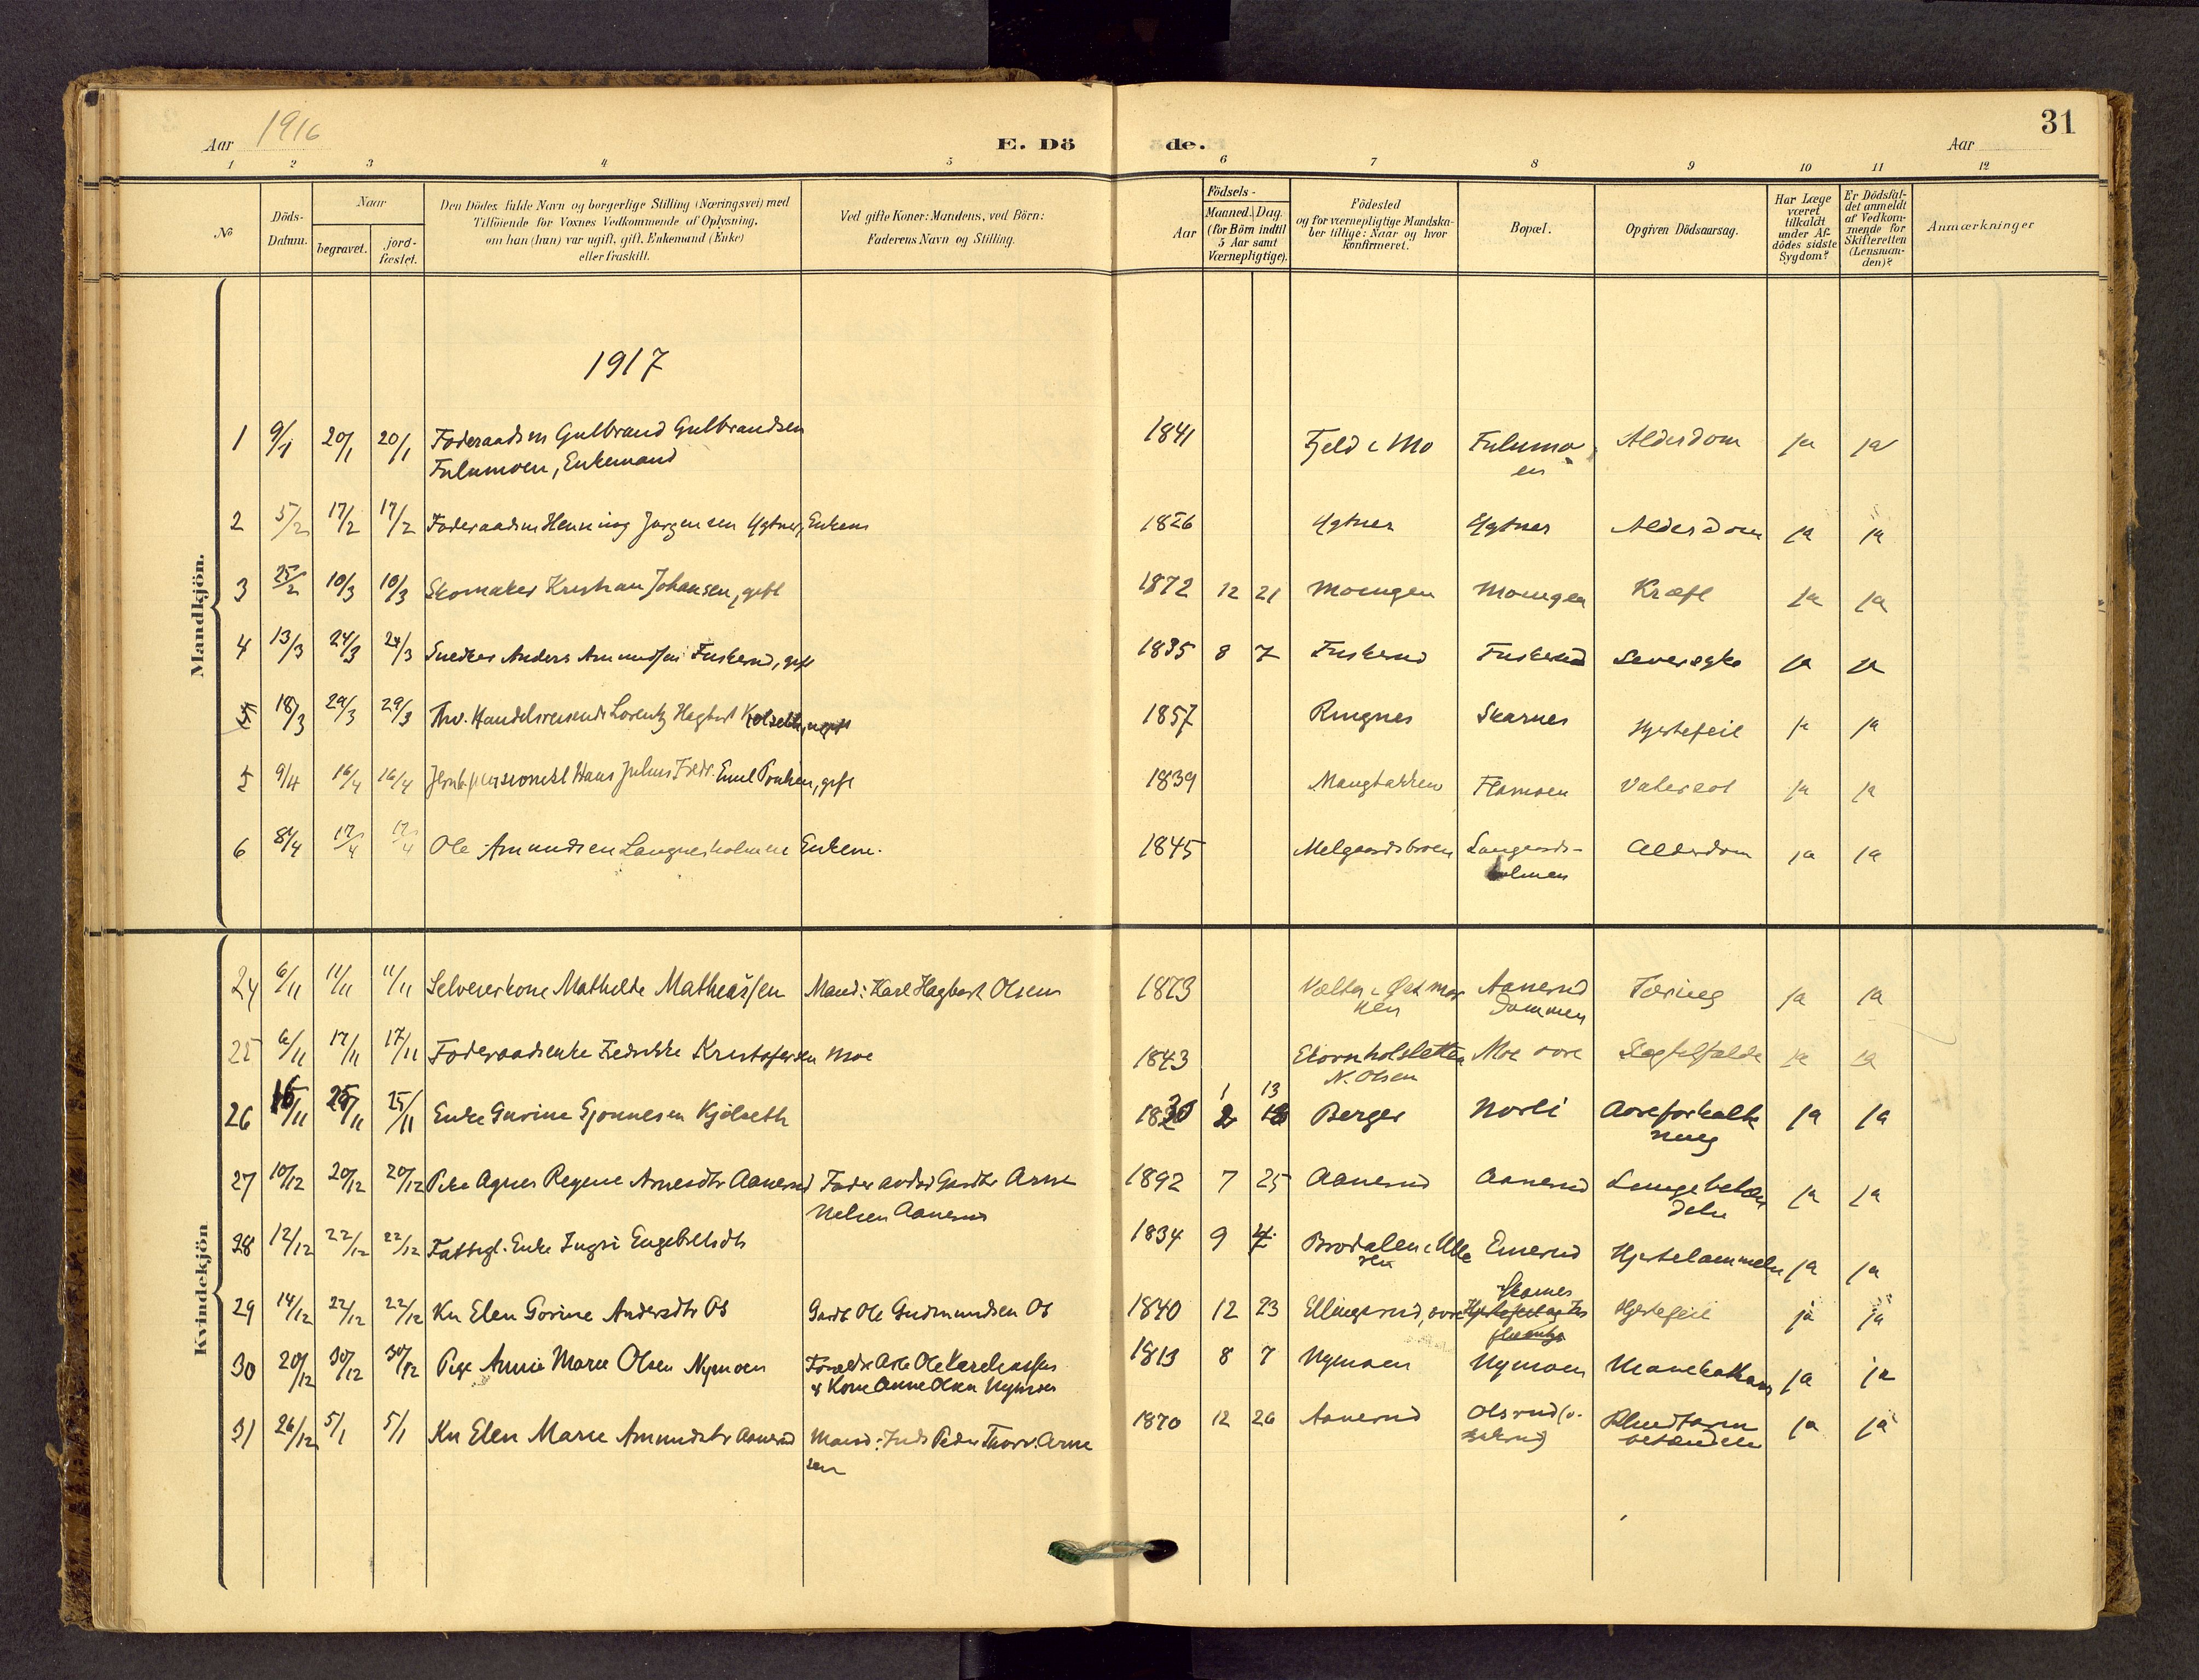 Aar 1916
E. Dö
de.
Aar
31
1 2 3 4 5 6 7 8 9 10 11 12
No
Döds-
Datum.
Naar
begravet.
jord-
fæstet.
Den Dödes fulde Navn og borgerlige Stilling (Næringsvei) med
Tilföiende for Voxnes Vedkommende af Oplysning,
om han (hun) var ugift, gift, Enkemand (Enke)
eller fraskilt.
Ved gifte Koner: Mandens, ved Börn:
Faderens Navn og Stilling.
Aar
Födsels-
Maaned. Dag.
(for Börn indtil
5 Aar samt
Værnepligtige).
Födested
og for værnepligtige Mandska-
ber tillige: Naar og hvor
konfirmeret.
Bopæl.
Opgiven Dödsaarsag.
Har Læge
været
tilkaldt
under Af-
dödes sidste
Sygdom?
Er Dödsfal-
det anmeldt
af Vedkom-
mende for
Skifteretten
(Lensman-
den)?
Anmærkninger
Mandkjön.
1917
1 9/1 20/1 20/1 Foderaadsm Gulbrand Gulbrandsen 1841 Fjeld i Mo Fulumo Alderdom ja ja
Fulumoen, Enkemand en
2 5/2 17/2 17/2 Foderaadsm Henning Jørgensen Ygtner, Enkem 1826 Ygtner Ygtner Alderdom ja ja
3 25/2 10/3 10/3 Skomaker Kristian Johansen, gift 1872 12 21 Moengen Moengen Kræft ja ja
4 13/3 24/3 24/3 Snedker Anders Amundsen Fuskerud, gift 1835 8 7 Fuskerud Fuskerud Leversyke ja ja
5 18/3 29/3 29/3 Fhv. Handelsreisende Lorentz Hagbart Kolseth, ugift 1857 Ringnes Skarnes Hjertefeil ja ja
5 9/4 16/4 16/4 Jernb.pensionist Hans Julius Fredr. Emil Poulsen, gift 1839 Mangbakken Flomoen Vatersot ja ja
6 8/4 17/4 17/4 Ole Amundsen Langnesholmen Enkem. 1845 Melgaardsbroen Langaards- Alderdom ja ja
holmen
Kvindekjön
24 6/11 11/11 11/11 Selveierkone Mathilde Mathias'sen Mand: Karl Hagbart Olsen 1873 Vælta i Øxmar Aanerud Tæring ja ja
ken Dammen
25 6/11 17/11 17/11 Foderaadsenke Fredrikke Kristofersen Moe 1843 Ekornholsletten Moe øvre Slagtilfælde ja ja
N. Olsen
26 16/11 25/11 25/11 Enke Gurine Gjonnesen Kjølseth 1830 1 13 Berger Norli Aareforkalk ja ja
ning
27 10/12 20/12 20/12 Pike Agnes Regine Arnesdtr Aanerud Fader avdød Gaardbr Arne 1892 7 25 Aanerud Aanerud Lungebetæn ja ja
Nelsen Aanerud delse
28 12/12 22/12 22/12 Fattigl. Enke Ingri Engebretsdtr 1834 9 4 Brodalen i Ulle Enerud Hjertelammelse ja ja
ren
29 14/12 22/12 22/12 Kn Elen Gorine Andersdtr Os Gaardb Ole Gudmundsen Os 1840 12 23 Ellingsrud, øvre Skarnes Hjertefeil ja ja
30 20/12 30/12 30/12 Pige Anna Marie Olsen Nymoen 1913 8 7 Nymoen Nymoen Mavekatharr ja ja
& Kone Anne Olsen Nymoen
31 26/12 5/1 5/1 Kn Elen Marie Amundsdtr Aanerud Mand: Inds Peder Thorv. Arne 1870 12 26 Aanerud Olsrud Blindtarm ja ja
sen betændelse